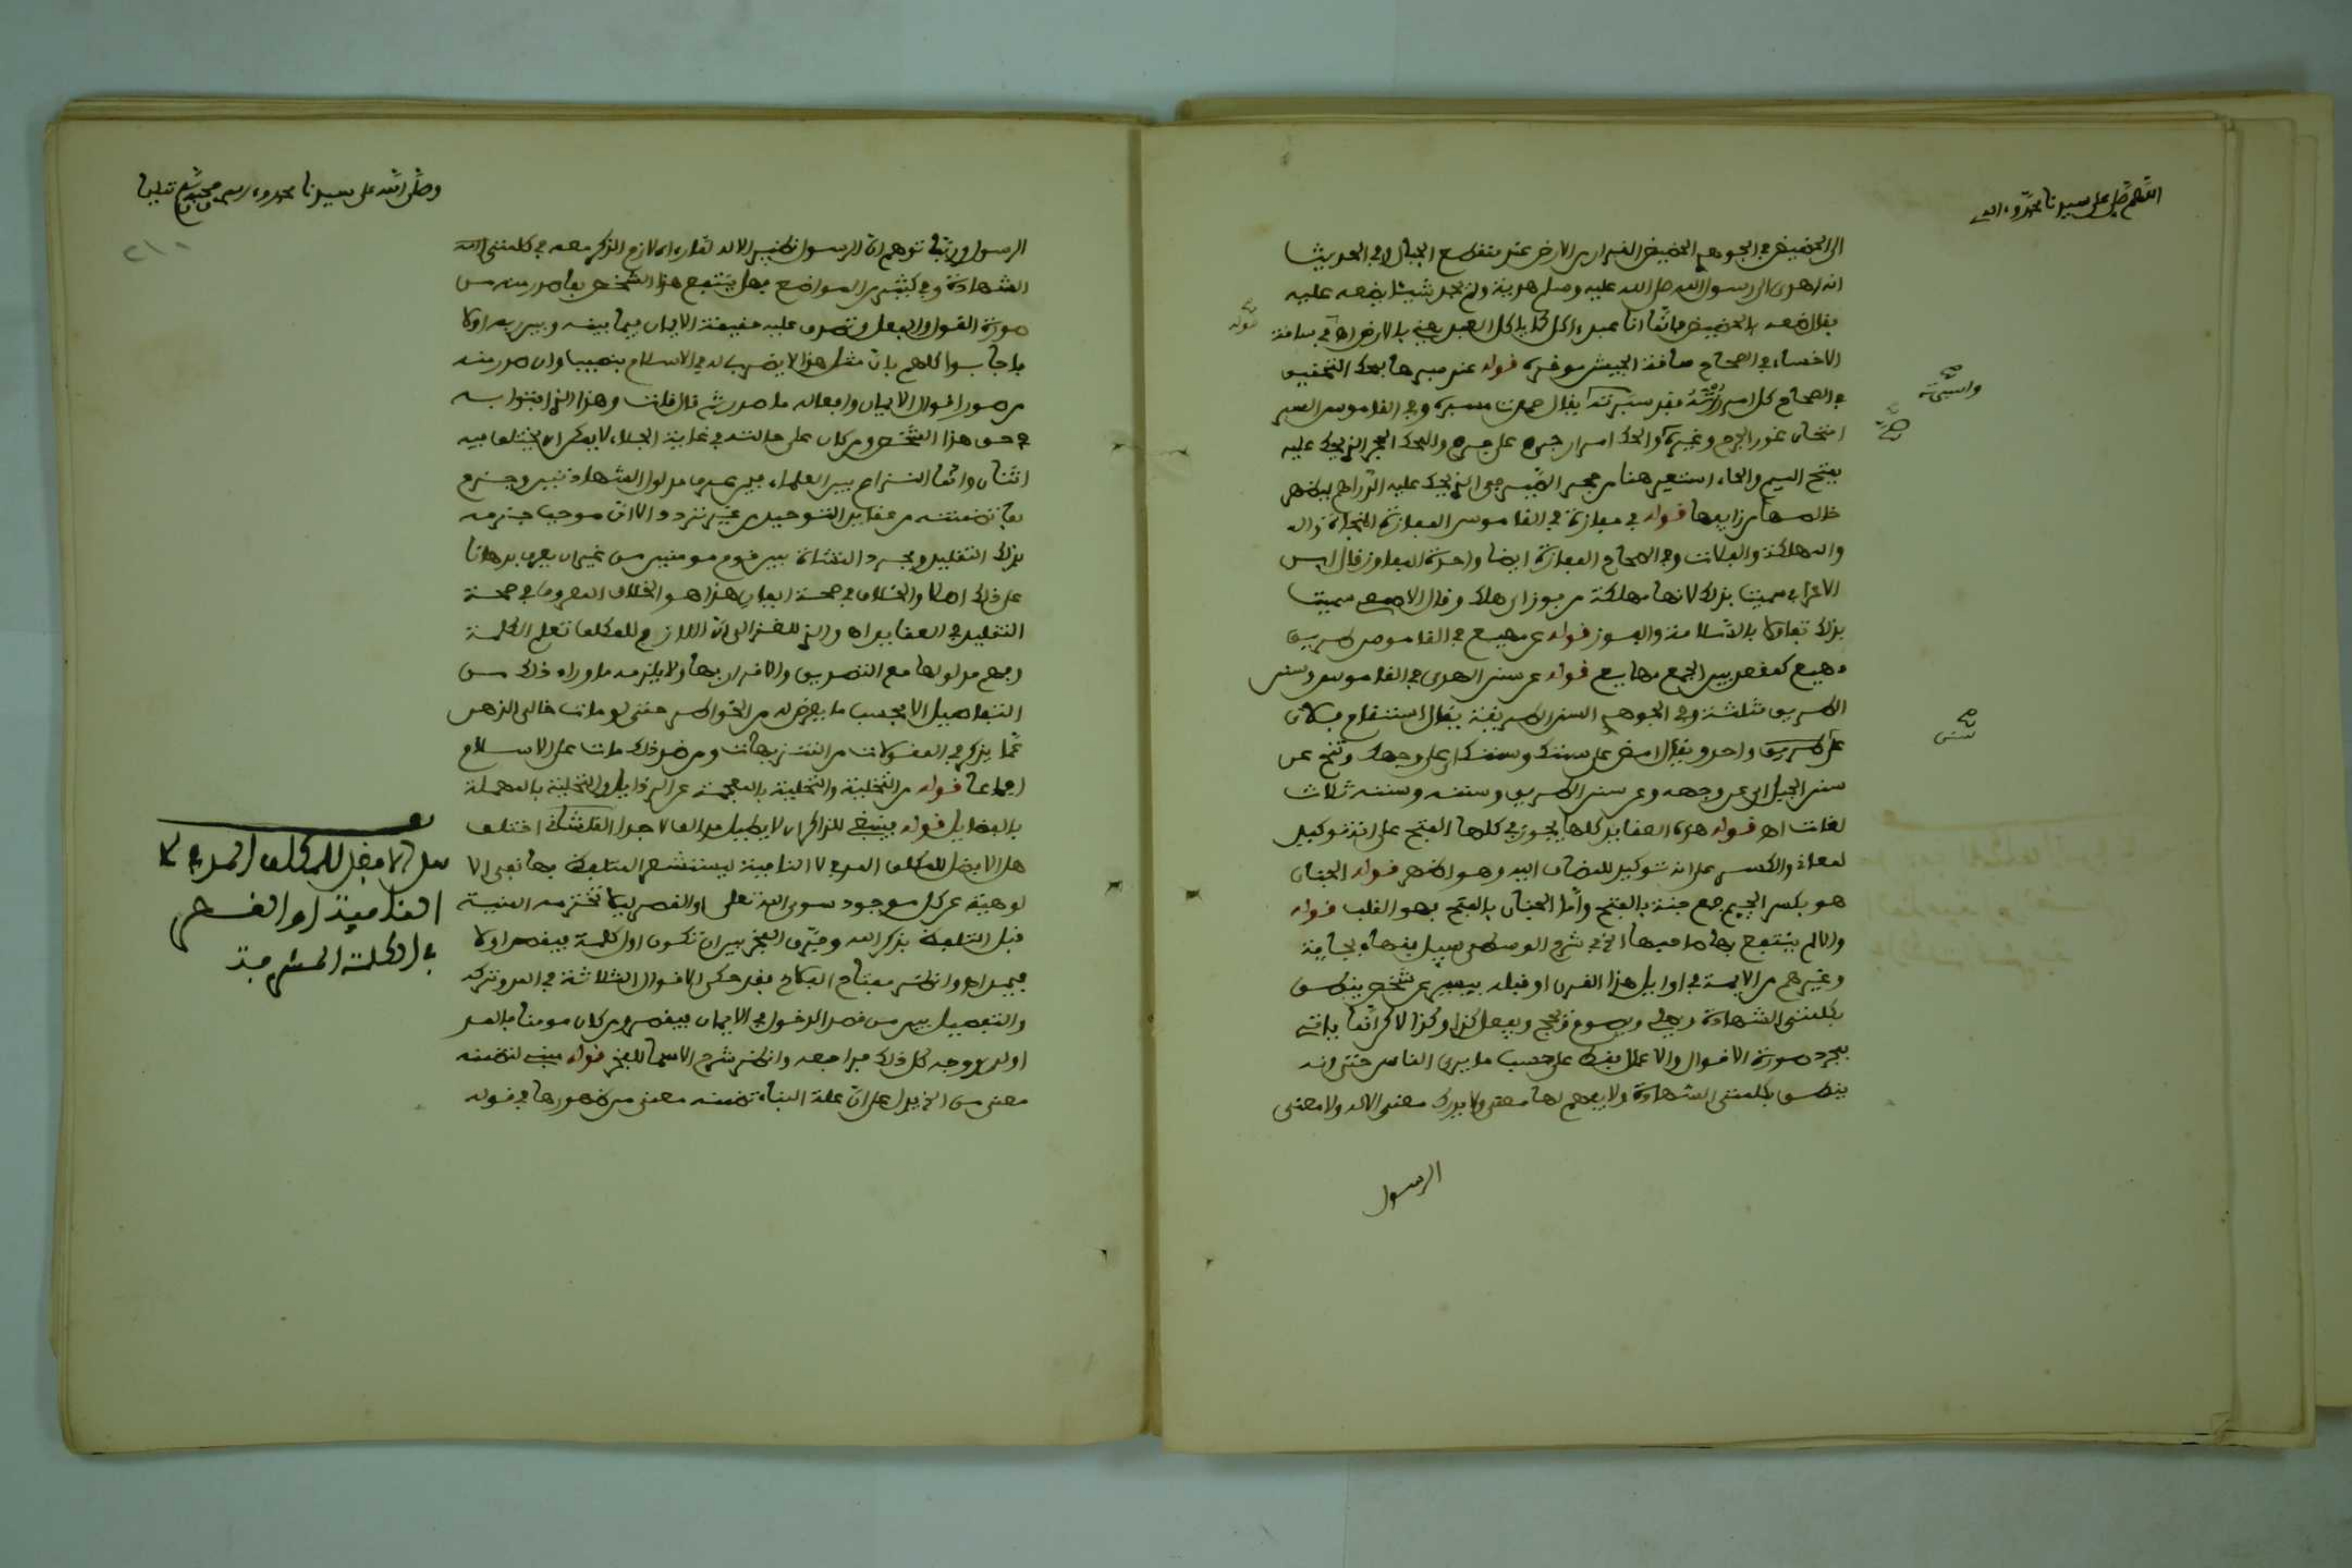 اللهم صل على سيدنا محمد وءاله
الى الحضيض في الجوهري الحضيض القرار من الارض عند منقطع الجبال وفي الحديث
انه اهدى الى رسول الله صلى الله عليه وسلم هدية ولم يجد شيئا يضعه عليه
فقال ضعه بالحضيض فانما انا عبد ءاكل كما ياكل العبد يعني بالارض اه في ساقة
الاخساء في الصحاح ساقة الجيش موخره قوله عند سبرها بمحك التحقيق
في الصحاح كل امر رزته فقد سبرته يقال حمدت مسبره وفي القاموس السبر
امتحان غور الجرح وغيره والحك امرار جرم على جرم والمحك الحجر الذي يحك عليه
بفتح الميم والحاء استعير هنا من حجر الصيرفي الذي يحك عليه الدراهم ليظهر
خالصها من زايفها قوله في مفازة في القاموس المفازة المنجاة
والمهلكة والفلاة وفي الصحاح المفازة ايضا واحدة المفاوز قال ابن
الاعرابي سميت بذلك لانها مهلكة من فوز اي هلك وقال الاصمعي سميت
بذلك تفاولا بالسلامة والفوز قوله عن مهيع في القاموس طريق
مهيع كمقعد بين الجمع مهايع قوله عن سنن الهدى في القاموس وسنن
الطريق مثلثة وفي الجوهري السنن الطريقة يقال استقام فلان
على طريق واحد ويقال امض على سننك وسننك اي على وجهك وتنح عن
سنن الجبل اي عن وجهه وعن سنن الطريق وسننه وسننه ثلاث
لغات اه قوله هذه العقايد كلها يجوز في كلها الفتح على انه توكيد
لمعاذ والكسر على انه توكيد للمضاف اليه وهو اظهر قوله الجنان
هو بكسر الجيم جمع جنة بالفتح واما الجنان بالفتح فهو القلب قوله
والا لم ينتفع بها صاحبها الخ في شرح الوسطى سئل فقهاء بجاية
وغيرهم من الايمة في اوايل هذا القرن او قبله بيسير عن شخص ينطق
بكلمتي الشهادة ويصلي ويصوم ويحج ويفعل كذا وكذا لاكن انما ياتي
بمجرد صورة الاقوال والاعمال فقط على حسب ما يرى الناس حتى انه
ينطق بكلمتي الشهادة ولا يفهم لها معنى ولا يدرك معنى الاله ولا معنى
الرسول
قوله
سنن
وصلى الله على سيدنا محمد وءاله وصحبه وسلم تسليما
الرسول وربما توهم ان الرسول نظير الاله لما رءاه لازم الذكر معه في كلمتي
الشهادة وفي كثير من المواضع فهل ينتفع هذا الشخص بما صدر منه من
صورة القول والفعل وتصدق عليه حقيقة الايمان فيما بينه وبين ربه او لا
فاجابوا كلهم بان مثل هذا لا يضرب له في الاسلام بنصيب وان صدر منه
من صور اقوال الايمان وافعاله ما صدر ثم قال قلت وهذا الذي افتوا به
في حق هذا الشخص ومن كان على حالته في غاية الجلاء لا يمكن ان يختلف فيه
اثنان وانما النزاع بين العلماء فيمن عرف مدلول الشهادتين وجزم
بما تضمنته من عقايد التوحيد من غير تردد الا ان موجب جزمه
بذلك التقليد ومجرد النشأة بين قوم مومنين من غير ان يعرف برهانا
على ذلك اصلا والخلاف في صحة ايمان هذا هو الخلاف المعروف في صحة
التقليد في العقايد اه والذي للغزالي ان اللازم للمكلف تعلم الكلمة
وفهم مدلولها مع التصديق والاقرار بها ولا يلزمه ما وراء ذلك من
التفاصيل الا بحسب ما يعرض له من الخواطر حتى لو مات خالي الذهن
عما يذكر في المطولات من التنزيهات ومن ضد ذلك مات على الاسلام
اجماعا قوله من التخلية والتحلية بالمعجمة عن الرذايل والتحلية بالمهملة
بالفضايل قوله ينبغي للذاكر ان لا يطيل مد الف لا جدا القلشاني اختلف
هل الافضل للمكلف المد في لا النافية ليستشعر المتلفظ بها نفي الا
لوهية عن كل موجود سوى الله تعلى او القصر ليلا تخترمه المنية
قبل التلفظ بذكر الله وفرق الفخر بين ان تكون اول كلمة فيقصر او لا
فيمد اه وانظر مفتاح الفلاح فقد حكى الاقوال الثلاثة في المد وتركه
والتفصيل بين من قصد الدخول في الايمان فيقصر ومن كان مومنا فالمد
اولى ووجه كل ذلك فراجعه وانظر شرح الاسماء للفخر قوله مبني لتضمنه
معنى من الخ يدل على ان علة البناء تضمنه معنى من ظهورها في قوله
هل الافضل للمكلف المد في لا
النافية او القصر
في الكلمة المشرفة